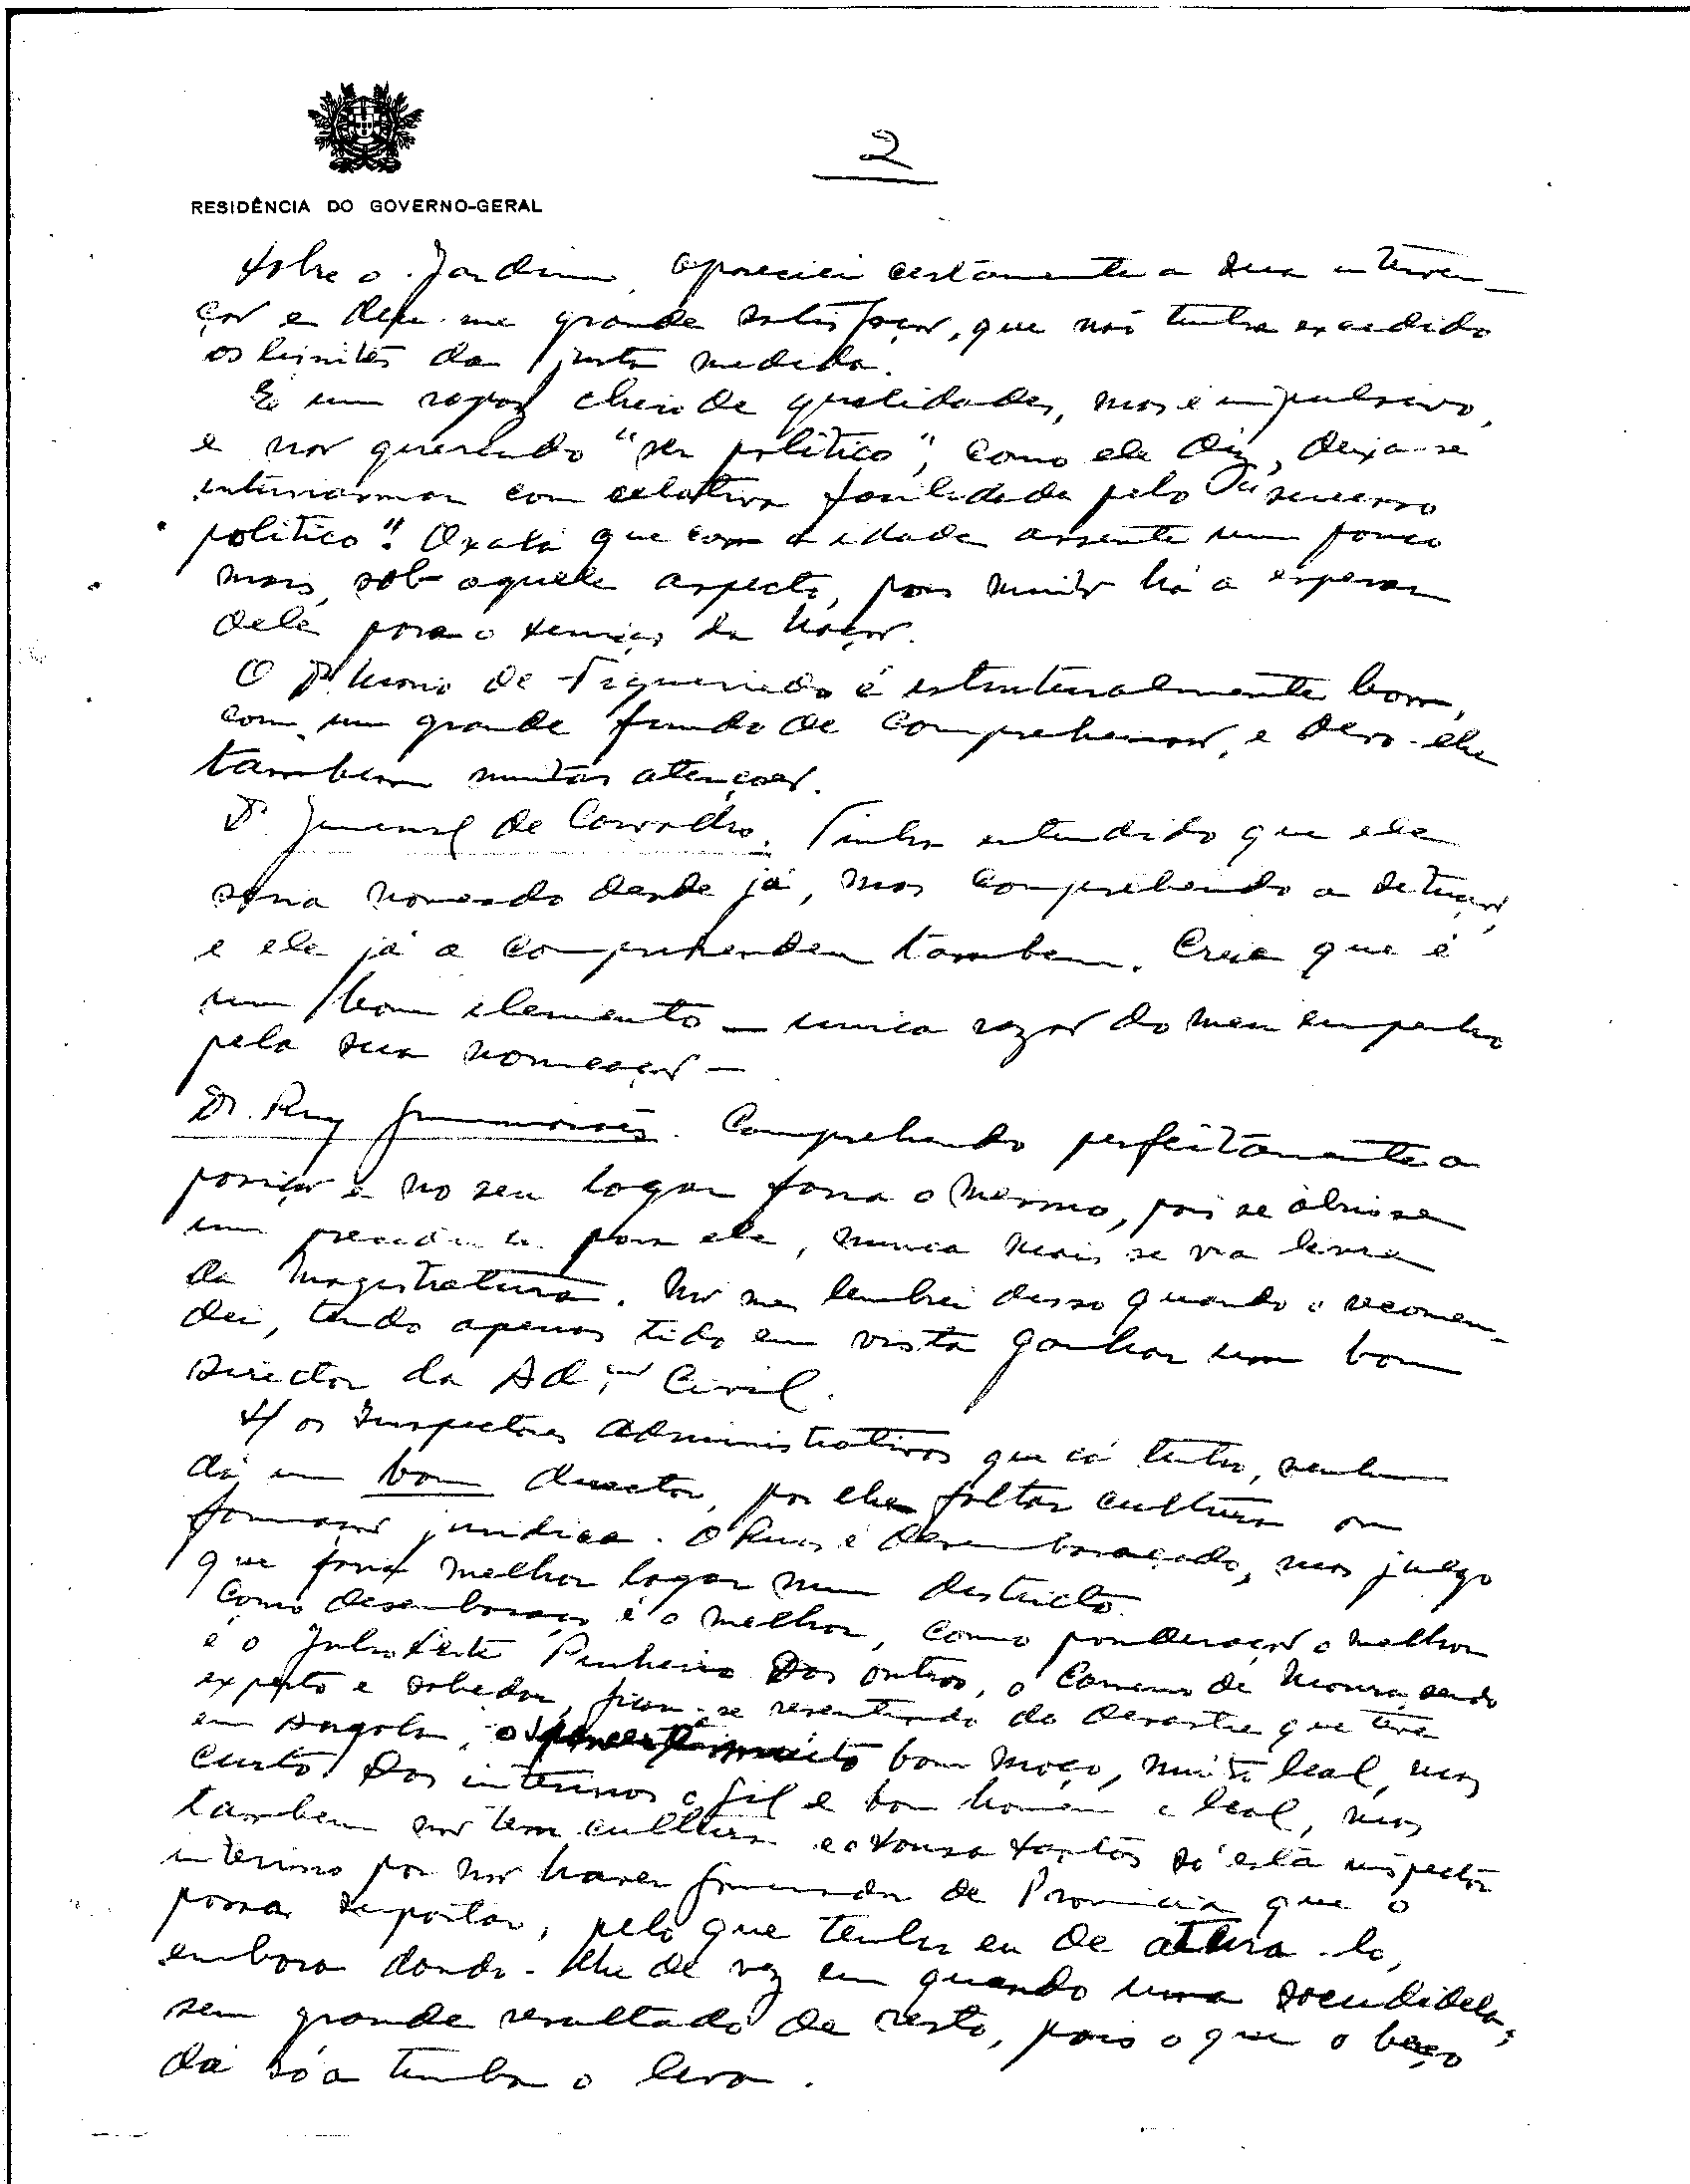 2
RESIDÊNCIA DO GOVERNO-GERAL
Sobre o Jardim, apreciei certamente a sua interven-
ção e deu-me grande satisfação, que não tenha excedido
os limites da justa medida.
É um rapaz cheio de qualidades, mas é impulsivo,
e não querendo "ser politico", como ele diz, deixa-se
entusiasmar com relativa facilidade pelo "sucesso
politico". Oxalá que com a idade assente um pouco
mais, sob aquele aspecto, pois muito há a esperar
dele para o serviço da Nação.
O Dr. de Figueiredo é estruturalmente bom,
com um grande fundo de comprehensão, e devo-lhe
tambem muitas atenções.
Dr. Juvenal de Carvalho. Tinha entendido que ele
seria nomeado desde já, mas comprehendo a situação,
e ele já a comprehendeu tambem. Creia que é
um bom elemento — unica razão do meu empenho
pela sua nomeação —
Dr. Ruy Guimarães. Comprehendo perfeitamente a
posição e no seu logar faria o mesmo, pois se abrisse
um precedente para ele, nunca mais se via livre
da Magistratura. Não me lembrei disso quando o recomen-
dei, tendo apenas tido em vista ganhar um bom
Director da Adm.ção Civil.
S/ os Inspectores administrativos que cá tenho, nenhum
dá um bom director, por lhe faltar cultura ou
formação juridica. O é desembaraçado, mas julgo
que fará melhor logar num districto.
Como desembaraço é o melhor, como ponderação o melhor
é o Julio Leite Pinheiro. Dos outros, o Carneiro de Moura, sendo
experto e sabedor, ficou-se resentindo do desastre que teve
em Angola, o muito bom moço, muito leal, mas
curto. Dos interinos o Gil é bom homem e leal, mas
tambem não tem cultura e o Sousa Santos só está inspector
interino por não haver Governador de Provincia que o
possa suportar, pelo que tenho eu de atura-lo,
embora dando-lhe de vez em quando uma sacudidela,
sem grande resultado de resto, pois o que o berço
dá só a tumba o leva.